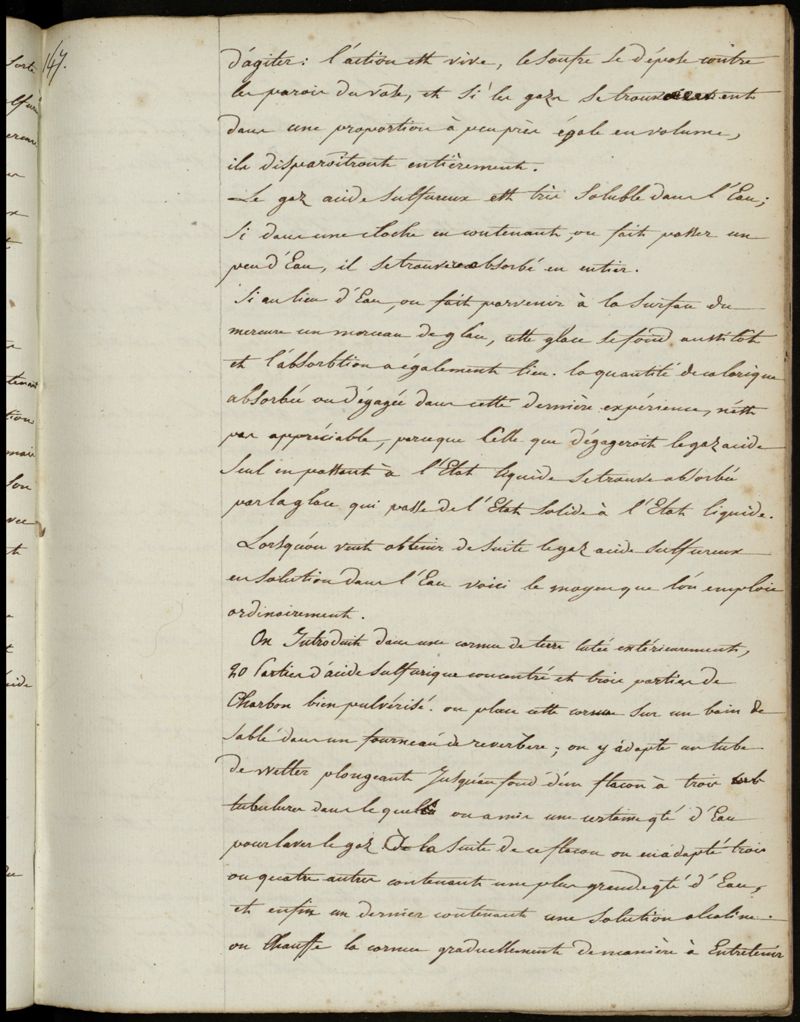 147.
d'agiter: l'action est vive, le soufre se dépose contre
les parois du vase, et si les gazs se trouvaient
dans une proportion à peu près égale en volume,
ils disparoîtront entièrement.
Le gaz acide sulfureux est très soluble dans l'Eau;
si dans une cloche en contenant, on fait passer un
peu d'Eau, il se trouve absorbé en entier.
Si au lieu d'Eau, on fait parvenir à la surface du
mercure un morceau de glace, cette glace se fond aussitôt
et l'absorbtion a également lieu. la quantité de calorique
absorbée ou dégagée dans cette dernière expérience, n'est
pas appréciable, parceque Celle que dégageroit le gaz acide
seul en passant à l'Etat liquide se trouve absorbée
par la glace qui passe de l'Etat solide à l'Etat liquide.
Lorsqu'on veut obtenir de suite le gaz acide sulfureux
en solution dans l'Eau voici le moyen que l'on emploie
ordinairement.
On Introduit dans une cornue de terre lutée extérieurement,
20 Parties d'acide sulfurique concentré et trois parties de
Charbon bien pulvérisé. on place cette cornue sur un bain de
sable dans un fourneau de reverbère; on y adapte un tube
de Welter plongeant Jusqu'au fond d'un flacon à trois
tubulures dans lequel on a mis une certaine qté d'Eau
pour laver le gaz. De la suite de ce flacon on en adapte trois
ou quatre autres contenant une plus grande qté d'Eau,
et enfin un dernier contenant une solution alcaline.
on Chauffe la cornue graduellement de manière à Entretenir